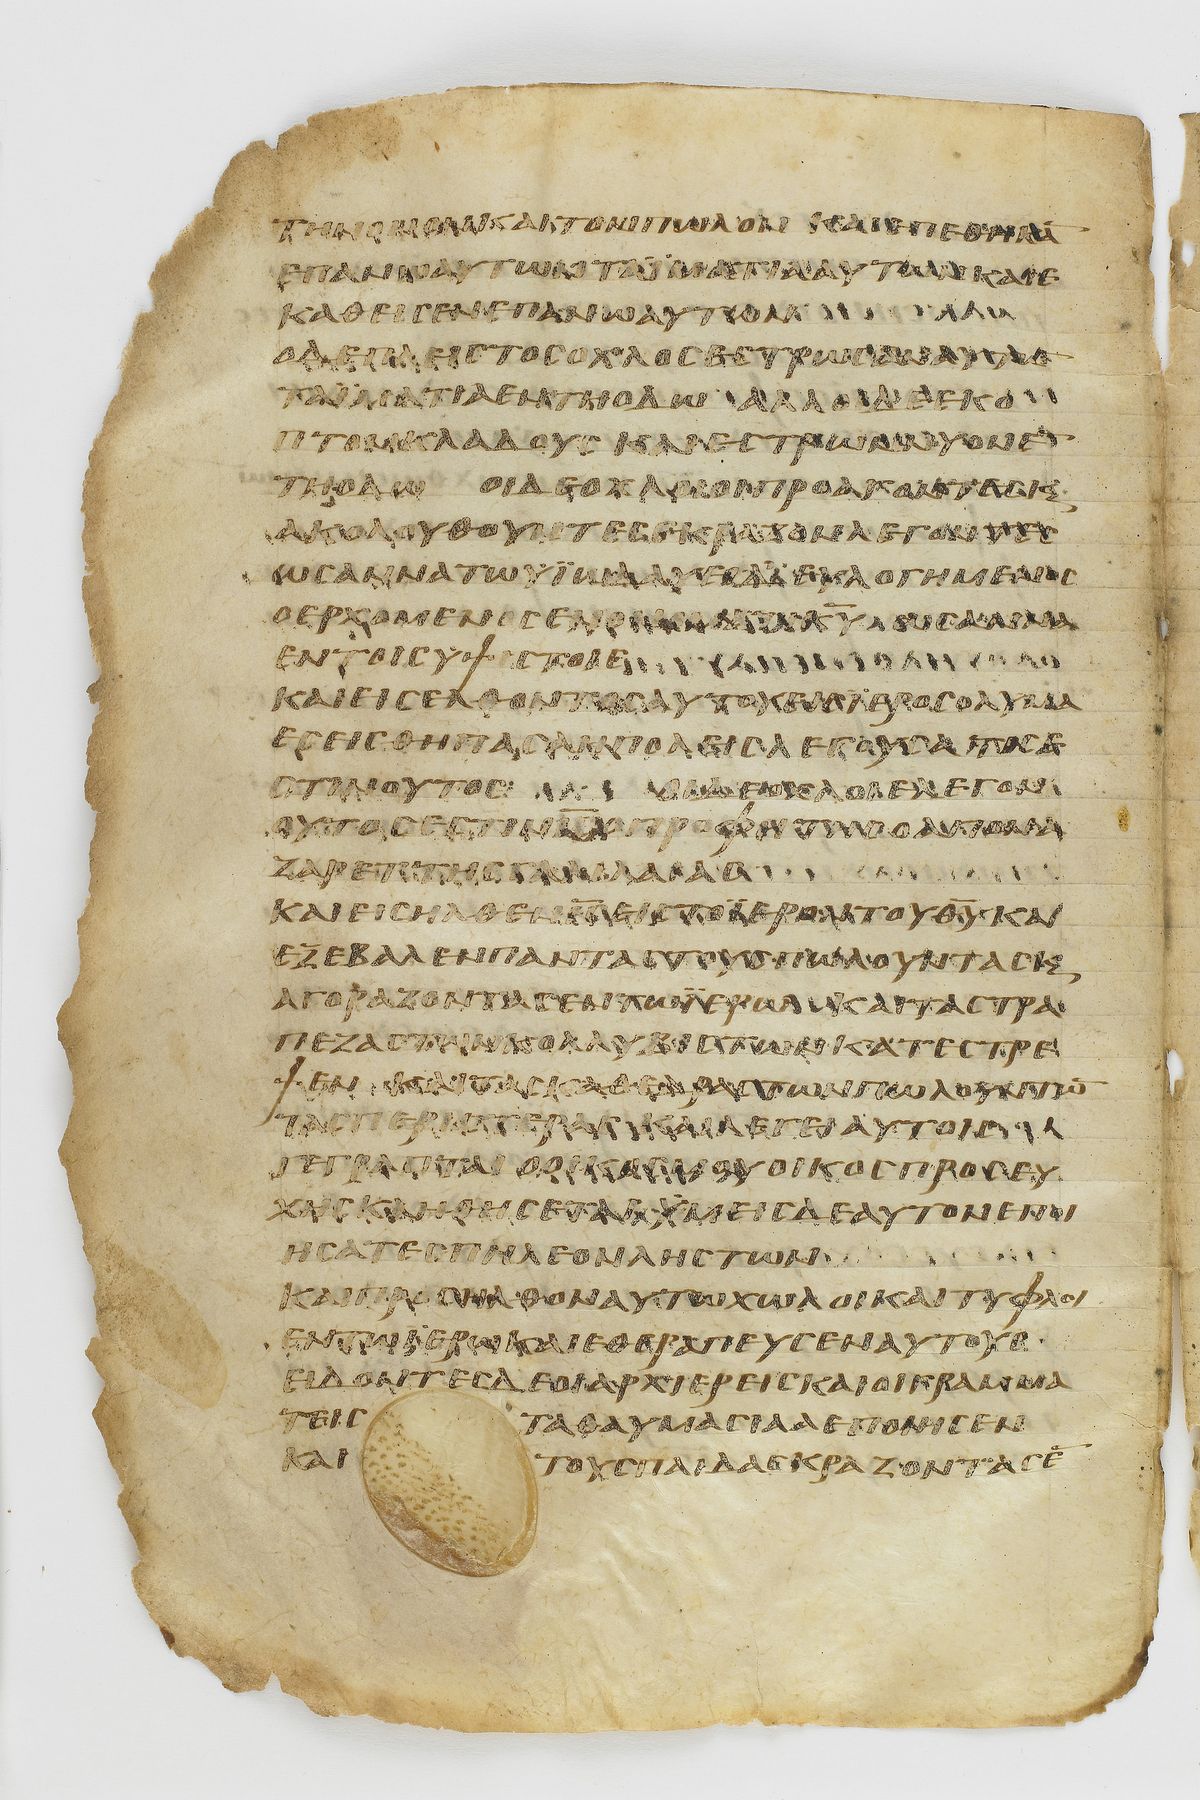 ΤΗΝΟΝΟΝΚΑΙΤΟΝΠΩΛΟΝ ΚΑΙΕΠΕΘΗΚΑ̅
ΕΠΑΝΩΑΥΤΩΝΤΑΪΜΑΤΙΑΑΥΤΩΝ ΚΑΙΕ
ΚΑΘΕΙϹΕΝΕΠΑΝΩΑΥΤΩΝ
ΟΔΕΠΛΕΙϹΤΟϹΟΧΛΟϹΕϹΤΡΩϹΑΝΕΑΥΤΩ̅
ΤΑΪΜΑΤΙΑΕΝΤΗΟΔΩ ΑΛΛΟΙΔΕΕΚΟ
ΠΤΟΝΚΛΑΔΟΥϹ ΚΑΙΕϹΤΡΩΝΝΥΟΝΕ̅
ΤΗΟΔΩ ΟΙΔΕΟΧΛΟΙΟΙΠΡΟΑΓΟΝΤΕϹΚ,
ΑΚΟΛΟΥΘΟΥΝΤΕϹΕΚΡΑΖΟΝΛΕΓΟΝΤΕϹ
ΩϹΑΝΝΑΤΩΥΪΩΔΑΥΕΙΔ ΕΥΛΟΓΗΜΕΝΟϹ
ΟΕΡΧΟΜΕΝΟϹΕΝΟΝΟΜΑΤΙΚ̅Υ̅ ΩϹΑΝΝΑ
ΕΝΤΟΙϹΥΨΙϹΤΟΙϹ
ΚΑΙΕΙϹΕΛΘΟΝΤΟϹΑΥΤΟΥΕΙϹΪΕΡΟϹΟΛΥΜΑ
ΕϹΕΙϹΘΗΠΑϹΑΗΠΟΛΕΙϹΛΕΓΟΥϹΑΤΙϹΕ
ϹΤΙΝΟΥΤΟϹ ΟΙΔΕΟΧΛΟΙΕΛΕΓΟΝ
ΟΥΤΟϹΕϹΤΙΝΙ̅Ϲ̅ΟΠΡΟΦΗΤΗϹΟΑΠΟΝΑ
ΖΑΡΕΤΤΗϹΓΑΛΙΛΑΙΑϹ
ΚΑΙΕΙϹΗΛΘΕΝΙ̅Ϲ̅ΕΙϹΤΟΪΕΡΟΝΤΟΥΘ̅Υ̅ ΚΑΙ
ΕΞΕΒΑΛΕΝΠΑΝΤΑϹΤΟΥϹΠΩΛΟΥΝΤΑϹΚ,
ΑΓΟΡΑΖΟΝΤΑϹΕΝΤΩΪΕΡΩ ΚΑΙΤΑϹΤΡΑ
ΠΕΖΑϹΤΩΝΚΟΛΛΥΒΙϹΤΩΝΚΑΤΕϹΤΡΕ
ΨΕΝ ΚΑΙΤΑϹΚΑΘΕΔΡΑϹΤΩΝΠΩΛΟΥΝΤΩ̅
ΤΑϹΠΕΡΙϹΤΕΡΑϹ ΚΑΙΛΕΓΕΙΑΥΤΟΙϹ
ΓΕΓΡΑΠΤΑΙ ΟΟΙΚΟϹΜΟΥΟΙΚΟϹΠΡΟϹΕΥ
ΧΗϹΚΛΗΘΗϹΕΤΑΙ ΫΜΕΙϹΔΕΑΥΤΟΝΕΠΟΙ
ΗϹΑΤΕϹΠΗΛΕΟΝΛΗϹΤΩΝ
ΚΑΙΠΡΟϹΗΛΘΟΝΑΥΤΩΧΩΛΟΙΚΑΙΤΥΦΛΟΙ
ΕΝΤΩΪΕΡΩ ΚΑΙΕΘΕΡΑΠΕΥϹΕΝΑΥΤΟΥϹ
ΕΙΔΟΝΤΕϹΔΕΟΙΑΡΧΙΕΡΕΙϹΚΑΙΟΙΓΡΑΜΜΑ
ΤΕΙϹ ΤΑΘΑΥΜΑϹΙΑΑΕΠΟΙΗϹΕΝ
ΚΑΙ ΤΟΥϹΠΑΙΔΑϹΚΡΑΖΟΝΤΑϹΕ̅